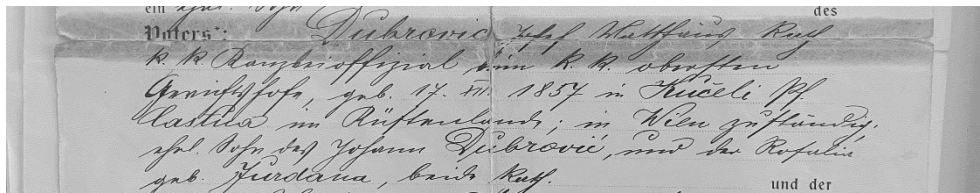 ein ehel. Sohn des
Vaters: Dubrović Josef Matthäus, kath.
k. k. Kanzleioffizial beim k. k. obersten
Gerichtshofe, geb. 17. XII. 1857 in Kučeli Pf.
Castua im Küstenlande; in Wien zuständig,
ehel. Sohn des Johann Dubrović, und der Rosalia
geb. Jurdana, beide kath.
und der